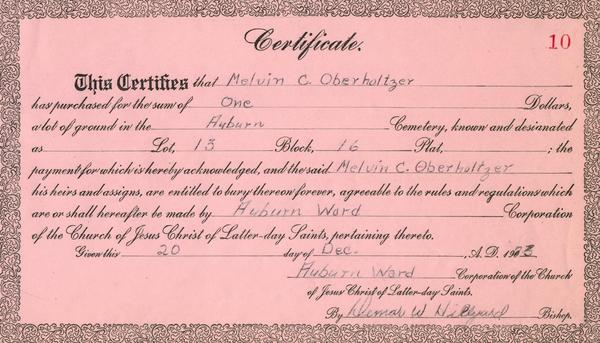 Certificate. 10
This Certifies that Melvin C. Oberholtzer
has purchased for the sum of One Dollars,
a lot of ground in the Auburn Cemetery, known and designated
as Lot, 13 Block, 16 Plat, ; the
payment for which is hereby acknowledged, and the said Melvin C. Oberholtzer
his heirs and assigns, are entitled to bury thereon forever, agreeable to the rules and regulations which
are or shall hereafter be made by Auburn Ward Corporation
of the Church of Jesus Christ of Latter-day Saints, pertaining thereto.
Given this 20 day of Dec. , A.D. 19
Auburn Ward Corporation of the Church
of Jesus Christ of Latter-day Saints.
By W Bishop.